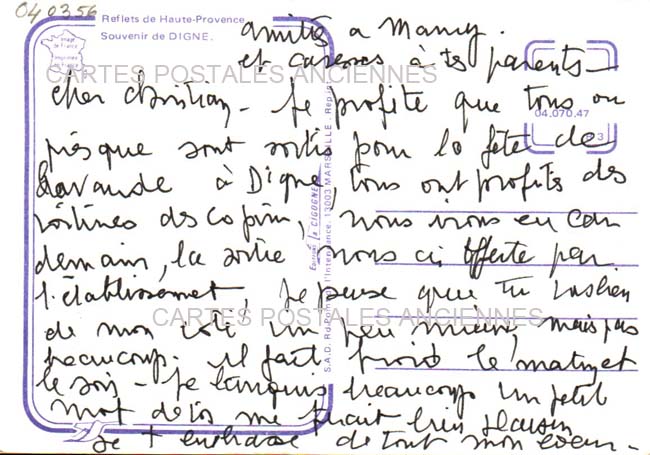 04 03 56
Reflets de Haute-Provence
Souvenir de DIGNE.
amitiés a Mamy.
et caresses à tes parents -
CARTES POSTALES ANCIENNES
cher christian - Je profite que tous ou
04.070.47
3
presque sont sortis pour la fête de
Lavande à Digne, tous ont profités des
voitures des copins, nous irons en car
demain, la sortie nous offerte par
l'établissement, Je pense que tu vas bien
de mon coté un peu mieux, mais pas
CARTES POSTALES ANCIENNES
beaucoup. il fait froid le matin et
le soir - Je languis beaucoup un petit
mot de toi me ferait bien plaisir
Je t embrasse de tout mon coeur -
Editions la CIGOGNE
S.A.D. Rd-Point de l'Intendance. 13003 MARSEILLE